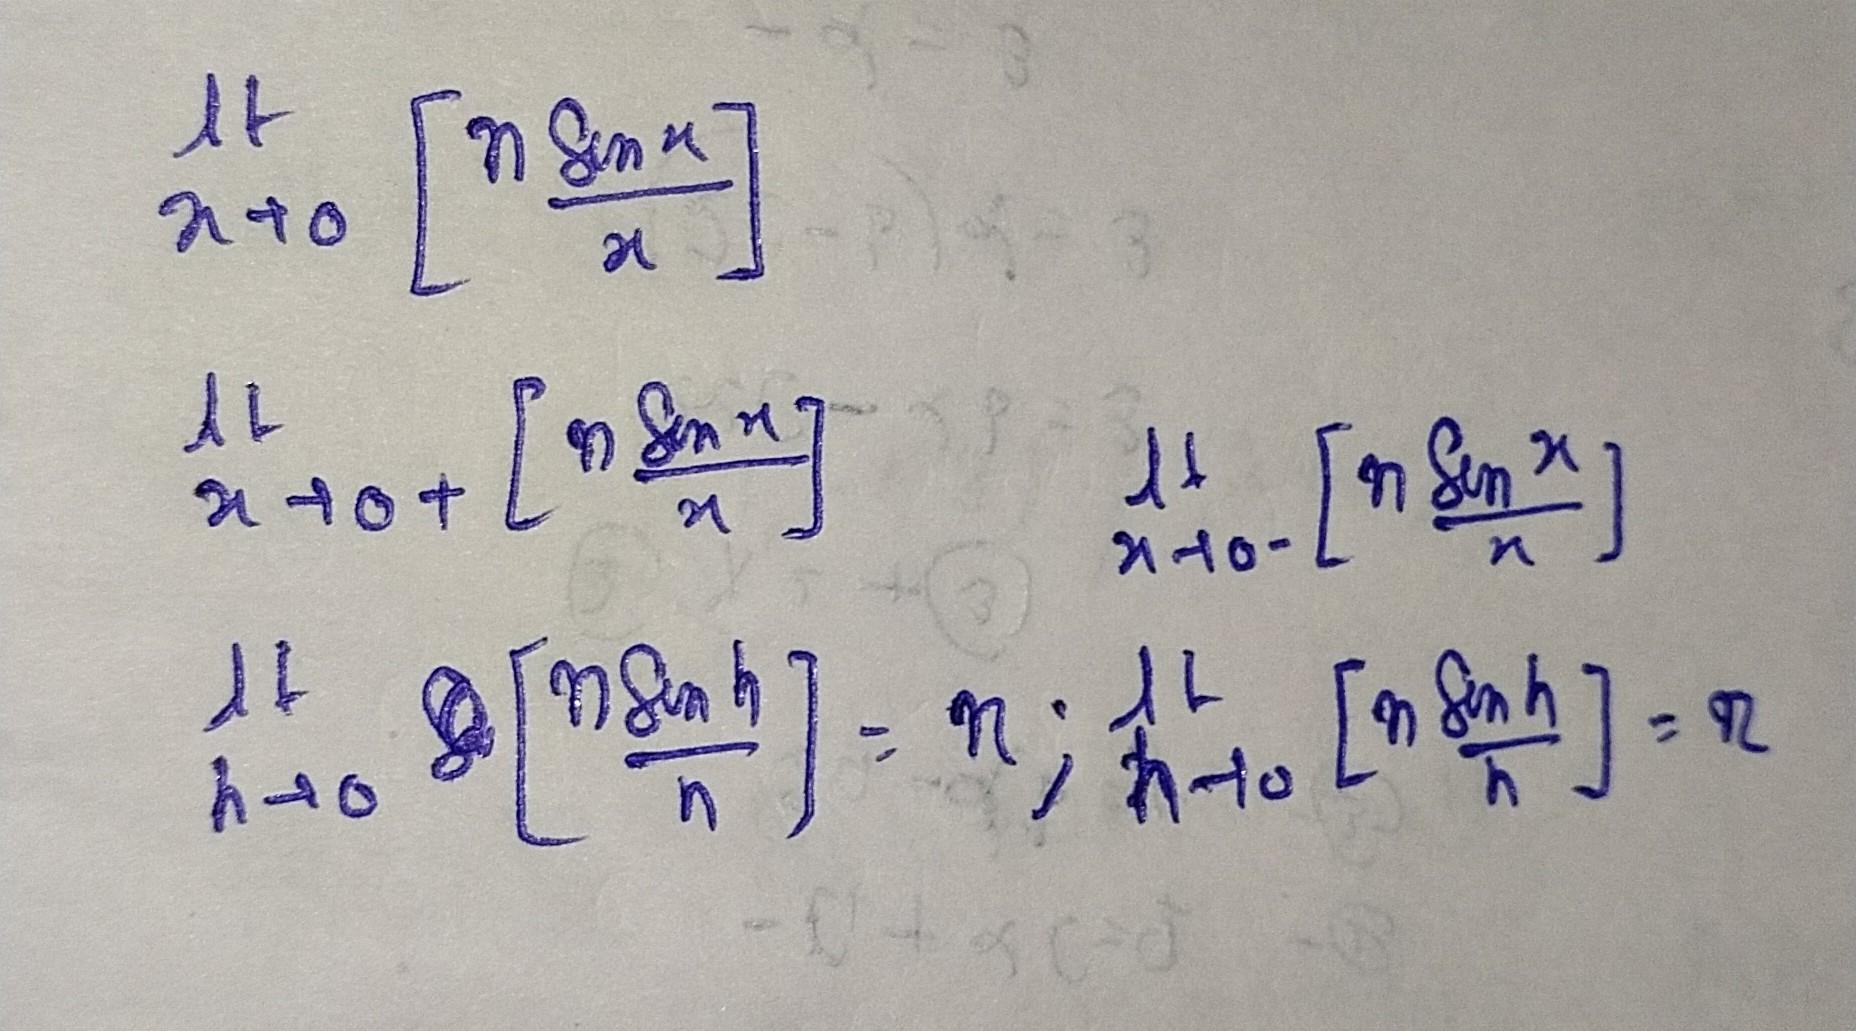 lt x→0 [n sin x / x]
lt x→0+ [n sin x / x] lt x→0- [n sin x / x]
lt h→0 [n sin h / h] = n ; lt h→0 [n sin h / h] = n